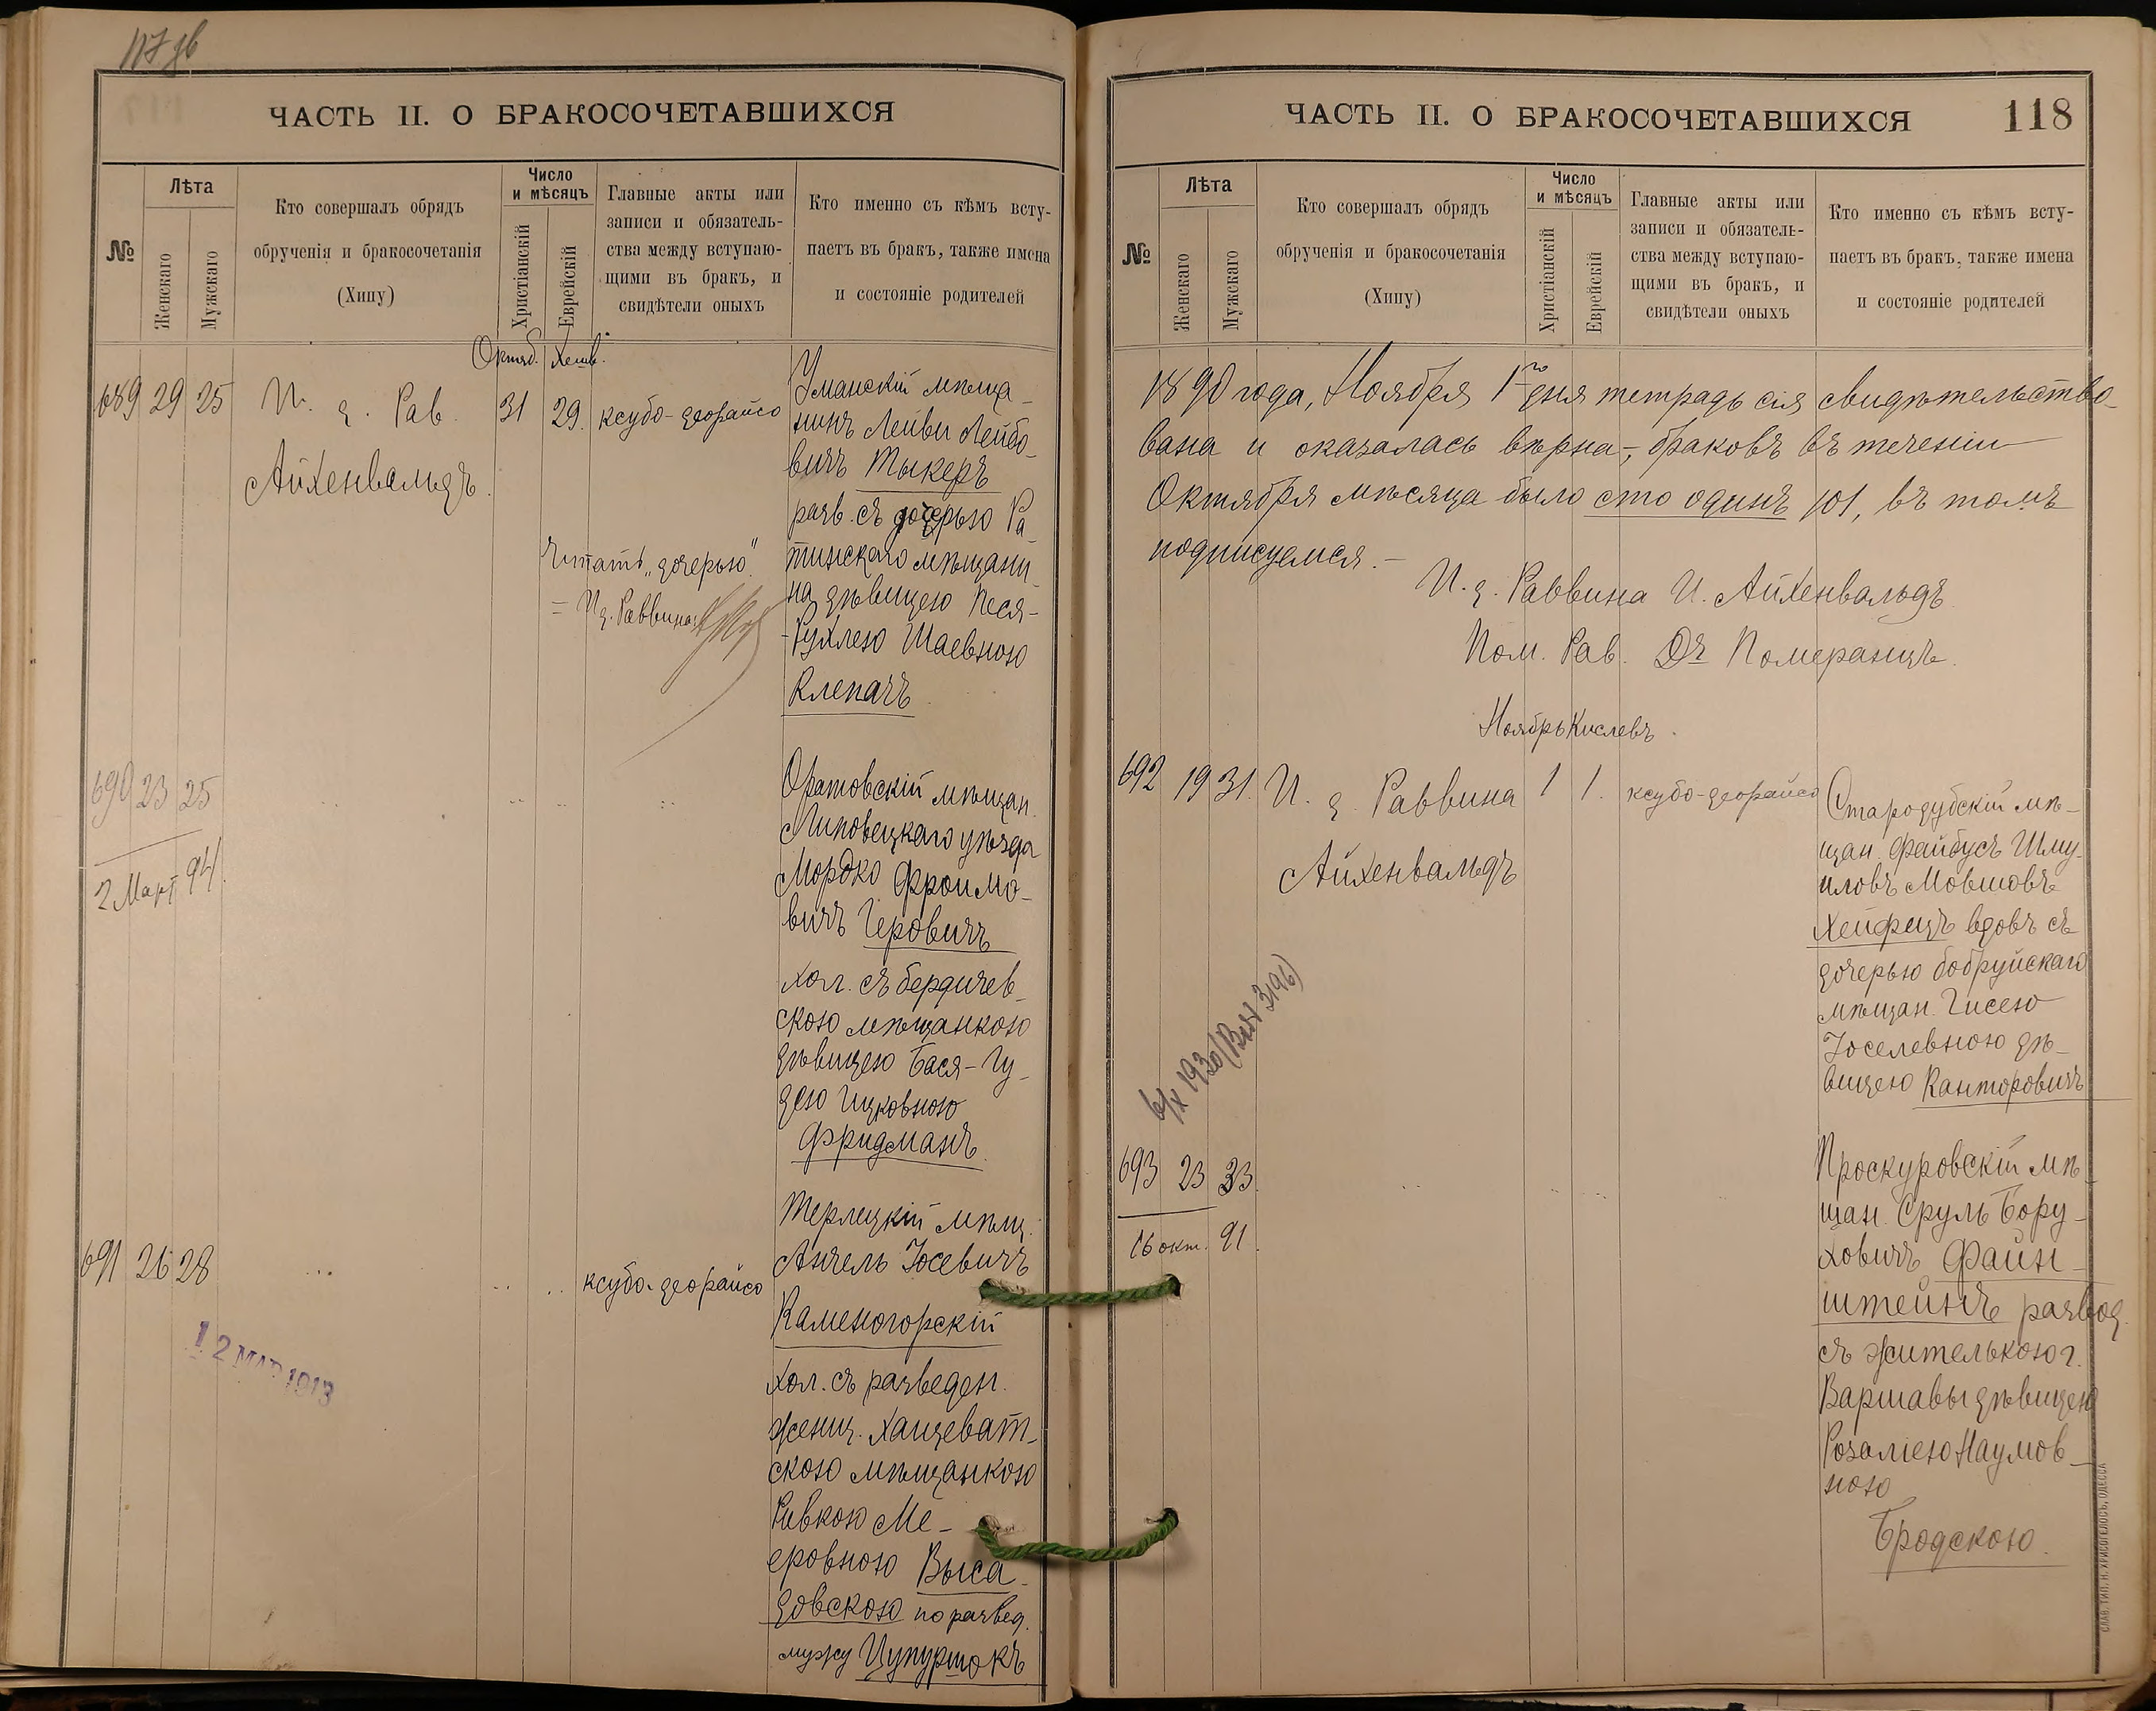 117 об
ЧАСТЬ II. О БРАКОСОЧЕТАВШИХСЯ
№
Лѣта
Женскаго
Мужскаго
Кто совершалъ обрядъ
обрученія и бракосочетанія
(Хипу)
Число
и мѣсяцъ
Христіанскій
Еврейскій
Главные акты или
записи и обязатель-
ства между вступаю-
щими въ бракъ, и
свидѣтели оныхъ
Кто именно съ кѣмъ всту-
паетъ въ бракъ, также имена
и состояніе родителей
Октяб. Хешв.
689 29 25
И. д. Рав.
Айхенвальдъ.
31 29.
ксубо-деорайсо
Уманскій мѣща-
нинъ Лейви Лейбо-
вичъ Тыкеръ
разв. съ дочерью Ра-
тинскаго мѣщани-
на дѣвицею Песя-
-Рухлею Шаевною
Клепачъ
Читать „дочерью".
= И д. Раввина
690 23 25
2 Март 94.
Оратовскій мѣщан.
Липовецкаго уѣзда
Мордко Фроимо-
вичъ Геровичъ
хол. съ бердичев-
скою мѣщанкою
дѣвицею Бася-Гу-
дею Ицковною
Фридманъ.
691 26 28
ксубо-деорайсо
Терлецкій мѣщ.
Анчель Іосевичъ
Каменогорскій
хол. съ разведен.
женщ. Хащеват-
скою мѣщанкою
Ривкою Ме-
еровною Выса-
довскою по развед.
мужу Цупуртокъ
12 МАР 1913
ЧАСТЬ II. О БРАКОСОЧЕТАВШИХСЯ
118
№
Лѣта
Женскаго
Мужскаго
Кто совершалъ обрядъ
обрученія и бракосочетанія
(Хипу)
Число
и мѣсяцъ
Христіанскій
Еврейскій
Главные акты или
записи и обязатель-
ства между вступаю-
щими въ бракъ, и
свидѣтели оныхъ
Кто именно съ кѣмъ всту-
паетъ въ бракъ, также имена
и состояніе родителей
1890 года, Ноября 1го дня тетрадь сія свидѣтельство-
вана и оказалась вѣрна, - браковъ въ теченіи
Октября мѣсяца было сто одинъ 101, въ томъ
подписуемся. -
И. д. Раввина И. Айхенвальдъ
Пом. Рав. Dr Померанцъ.
Ноябрь Кислевъ.
692 19 31.
И. д. Раввина
Айхенвальдъ
1 1.
ксубо-деорайсо
Стародубскій мѣ-
щан. Файбусъ Шму-
иловъ Мовшовъ
Хейфицъ вдовъ съ
дочерью бобруйскаго
мѣщан. Гисею
Іоселевною дѣ-
вицею Канторовичъ
6/X 1930
693 23 33.
16 окт. 91.
Проскуровскій мѣ-
щан. Сруль Бору-
ховичъ Файн-
штейнъ развод.
съ жителькою г.
Варшавы дѣвицею
Розаліею Наумов-
ною
Бродскою.
СЛАВ. ТИП. Н. ХРИСОГЕЛОСЪ, ОДЕССА